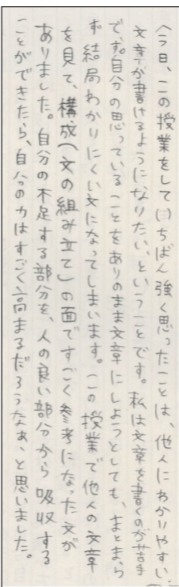 〈今日、この授業をしていちばん強く思ったことは、他人にわかりやすい
文章が書けるようになりたい、ということです。私は文章を書くのが苦手
です。自分の思っていることをありのまま文章にしようとしても、まとまら
ず結局わかりにくい文になってしまいます。この授業で他人の文章
を見て、構成(文の組み立て)の面ですごく参考になった文が
ありました。自分の不足する部分を、人の良い部分から吸収する
ことができたら、自分の力はすごく高まるだろうなぁ、と思いました。